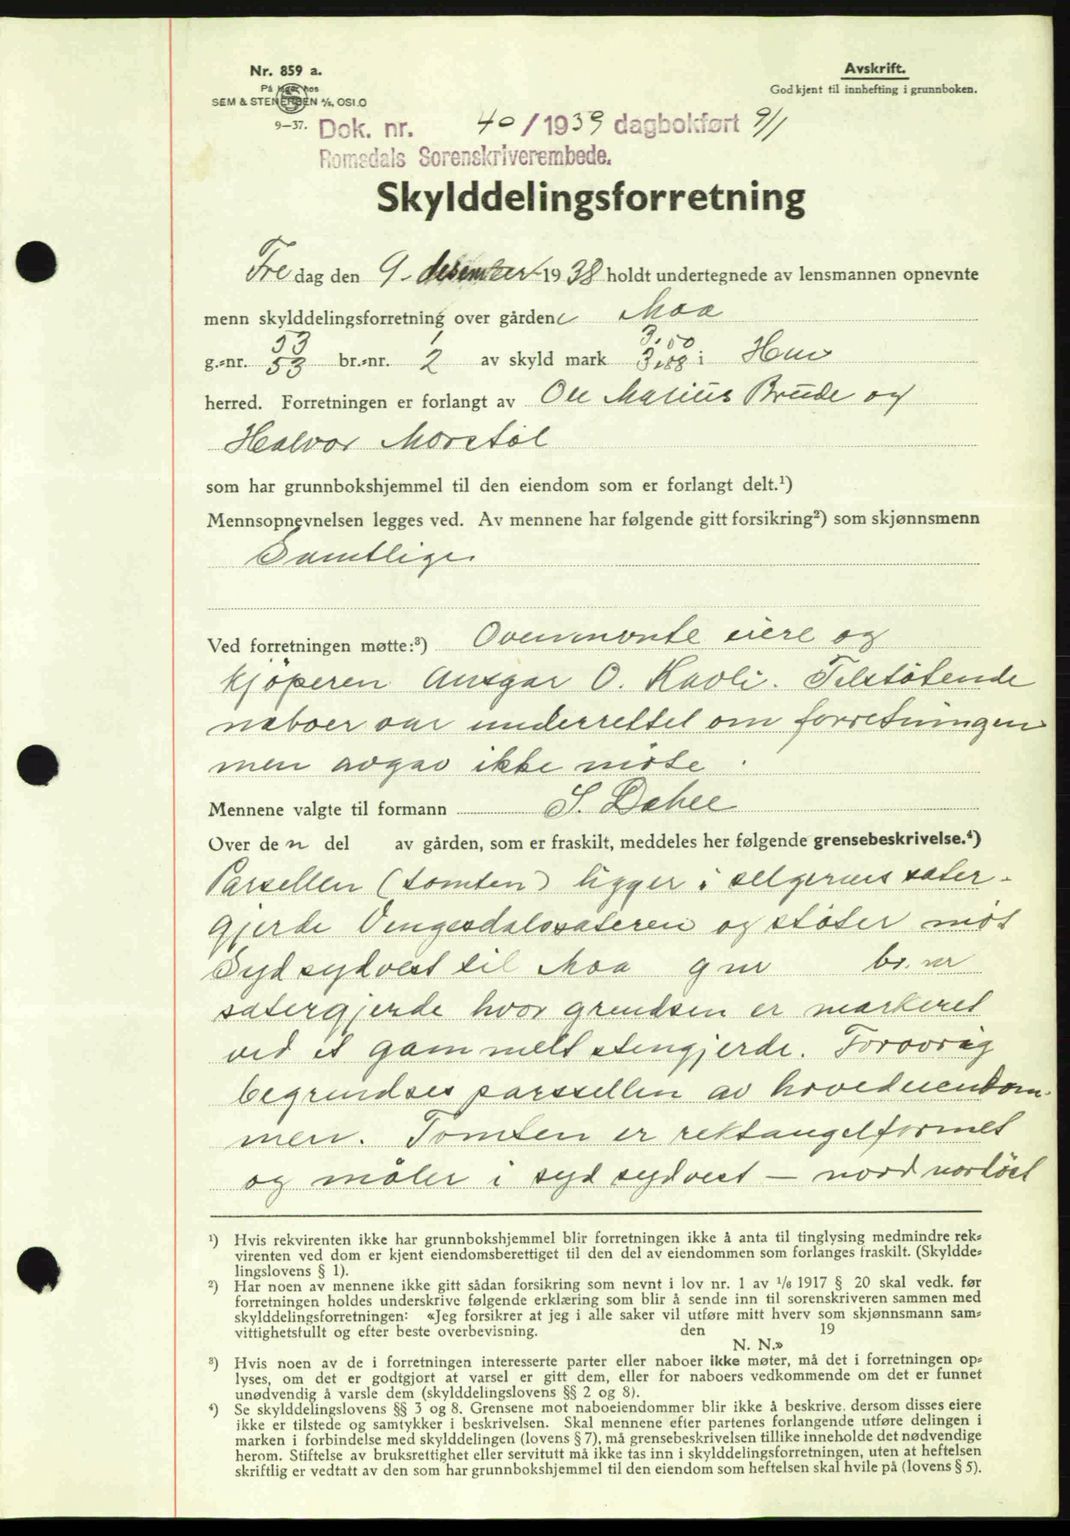 Nr. 859 a.
På lager hos
SEM & STENERSEN A/S, OSLO
9—37.
Avskrift.
Godkjent til innhefting i grunnboken.
Dok. nr. 40 / 1939 dagbokført 9/1
Romsdals Sorenskriverembede.
Skylddelingsforretning
Fredag den 9. desember 1938 holdt undertegnede av lensmannen opnevnte
menn skylddelingsforretning over gården Moa
53 1 3,50
g.-nr. 53 br.-nr. 2 av skyld mark 3,88 i Hen
herred. Forretningen er forlangt av Ole Marius Brude og
Halvor Morstøl
som har grunnbokshjemmel til den eiendom som er forlangt delt.¹)
Mennsopnevnelsen legges ved. Av mennene har følgende gitt forsikring²) som skjønnsmenn
Samtlige.
Ved forretningen møtte:³) Ovennevnte eiere og
kjøperen Ansgar O. Kavli. Tilstøtende
naboer var underrettet om forretningen
men avgav ikke møte.
Mennene valgte til formann S. Dahle
Over den del av gården, som er fraskilt, meddeles her følgende grensebeskrivelse.⁴)
Parsellen (tomten) ligger i selgernes sæter-
gjerde Vengedalssæteren og støter mot
Syd sydvest til Moa gnr br. nr
sætergjerde hvor grendsen er markeret
ved et gammelt stengjerde. Forøvrig
begrendses parsellen av hovedeiendom-
men. Tomten er rektangelformet
og måler i syd sydvest — nord nordøst
¹) Hvis rekvirenten ikke har grunnbokshjemmel blir forretningen ikke å anta til tinglysing medmindre rek-
virenten ved dom er kjent eiendomsberettiget til den del av eiendommen som forlanges fraskilt. (Skyldde-
lingslovens § 1).
²) Har noen av mennene ikke gitt sådan forsikring som nevnt i lov nr. 1 av 1/6 1917 § 20 skal vedk. før
forretningen holdes underskrive følgende erklæring som blir å sende inn til sorenskriveren sammen med
skylddelingsforretningen: «Jeg forsikrer at jeg i alle saker vil utføre mitt hverv som skjønnsmann sam-
vittighetsfullt og efter beste overbevisning. den 19
N. N.»
³) Hvis noen av de i forretningen interesserte parter eller naboer ikke møter, må det i forretningen op-
lyses, om det er godtgjort at varsel er gitt dem, eller for naboers vedkommende om det er funnet
unødvendig å varsle dem (skylddelingslovens §§ 2 og 8).
⁴) Se skylddelingslovens §§ 3 og 8. Grensene mot naboeiendommer blir ikke å beskrive, dersom disses eiere
ikke er tilstede og samtykker i beskrivelsen. Skal mennene efter partenes forlangende utføre delingen i
marken i forbindelse med skylddelingen (lovens § 7), må grensebeskrivelsen tillike inneholde det nødvendige
herom. Stiftelse av bruksrettighet eller servitutt må ikke tas inn i skylddelingsforretningen, uten at heftelsen
skriftlig er vedtatt av den som har grunnbokshjemmel til den eiendom som heftelsen skal hvile på (lovens § 5).